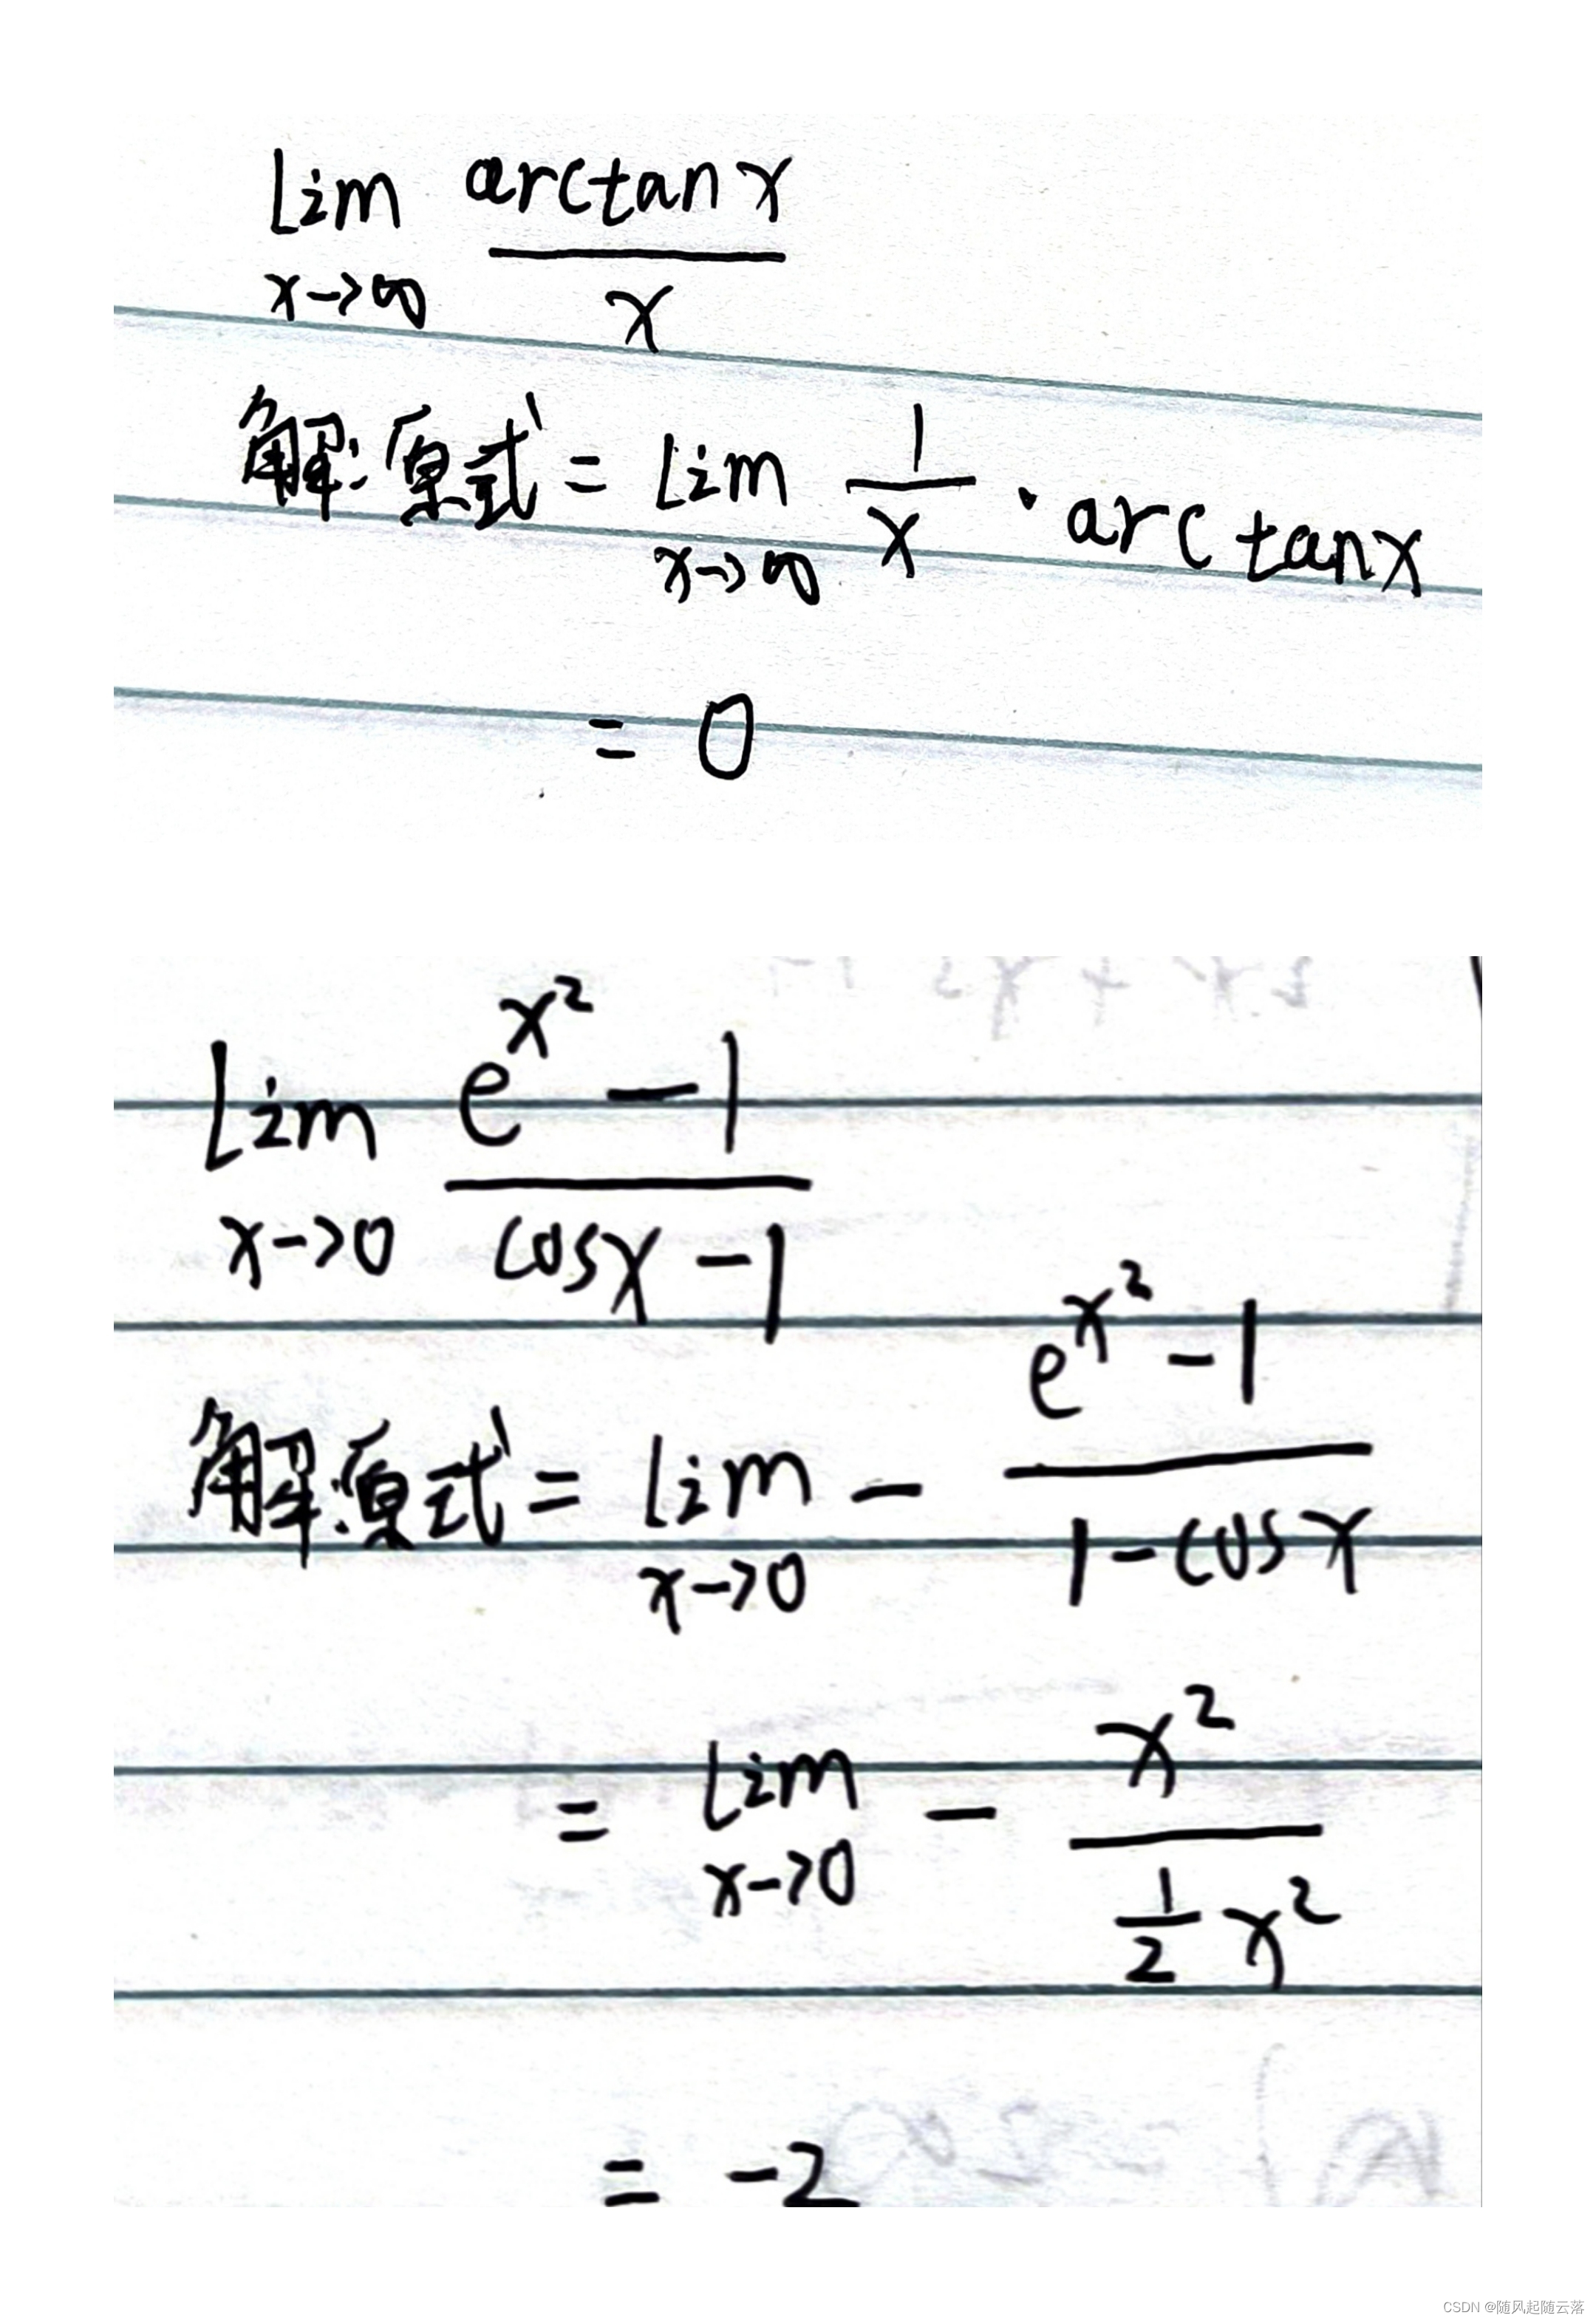 lim arctanx / x
x→∞
解:原式 = lim 1/x · arctanx
x→∞
= 0
lim e^{x^2} - 1 / cosx - 1
x→0
解:原式 = lim - e^{x^2} - 1 / 1 - cosx
x→0
= lim - x^2 / 1/2 x^2
x→0
= -2
CSDN @随风起随云落